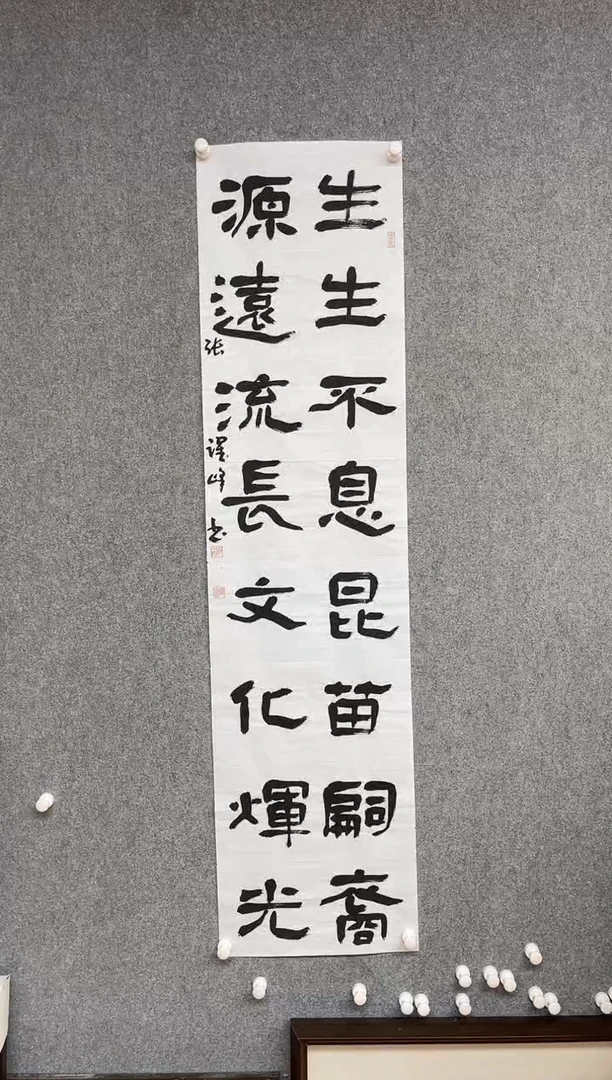 生生不息昆苗嗣裔
源遠流長文化煇光
张 峰书